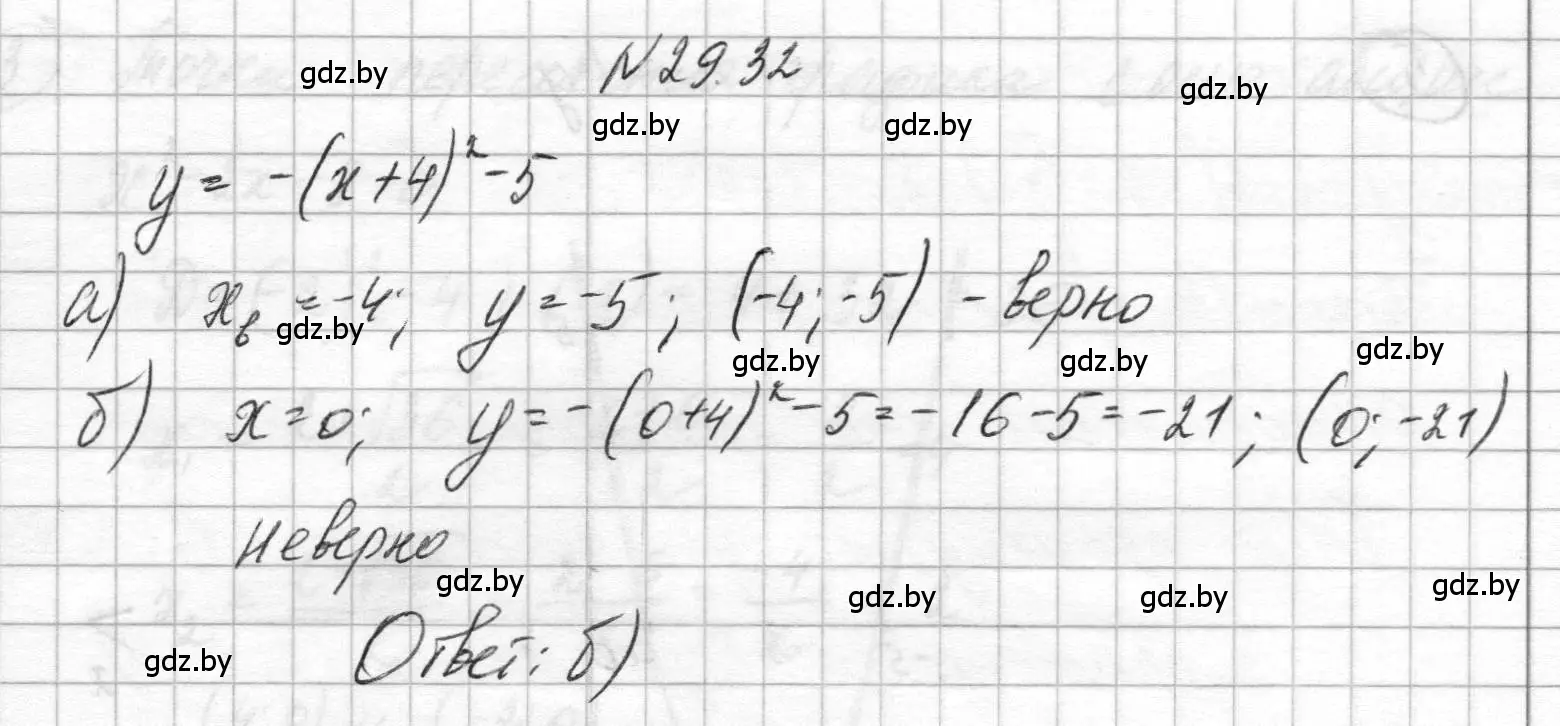 N 29.32
gdz.by
gdz.by
gdz.by
gdz.by
y = -(x+4)² - 5
а) xв = -4; y = -5; (-4; -5) - верно
gdz.by
gdz.by
gdz.by
gdz.by
б) x=0; y = -(0+4)² - 5 = -16 - 5 = -21; (0; -21)
неверно
gdz.by
gdz.by
gdz.by
gdz.by
Ответ: б)
gdz.by